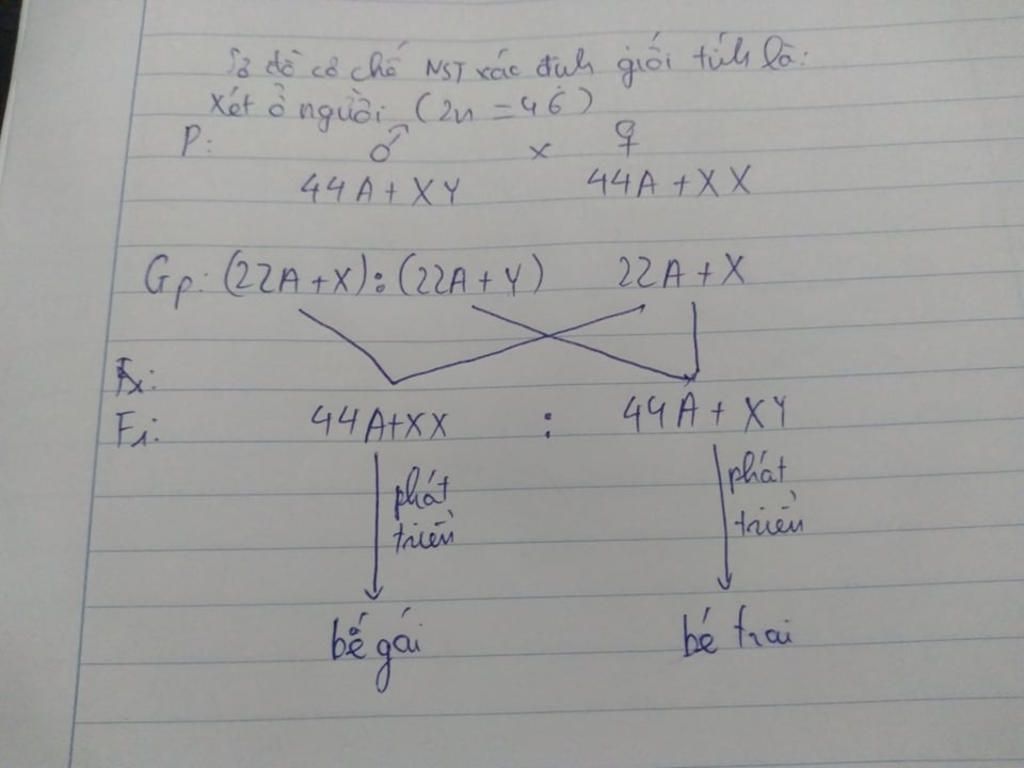 Sơ đồ cơ chế NST xác định giới tính là:
Xét ở người (2n = 46)
P: ♂ x ♀
44A + XY 44A + XX
Gp: (22A + X) : (22A + Y) 22A + X
F1: 44A+XX : 44A + XY
phát phát
triển triển
bé gái bé trai